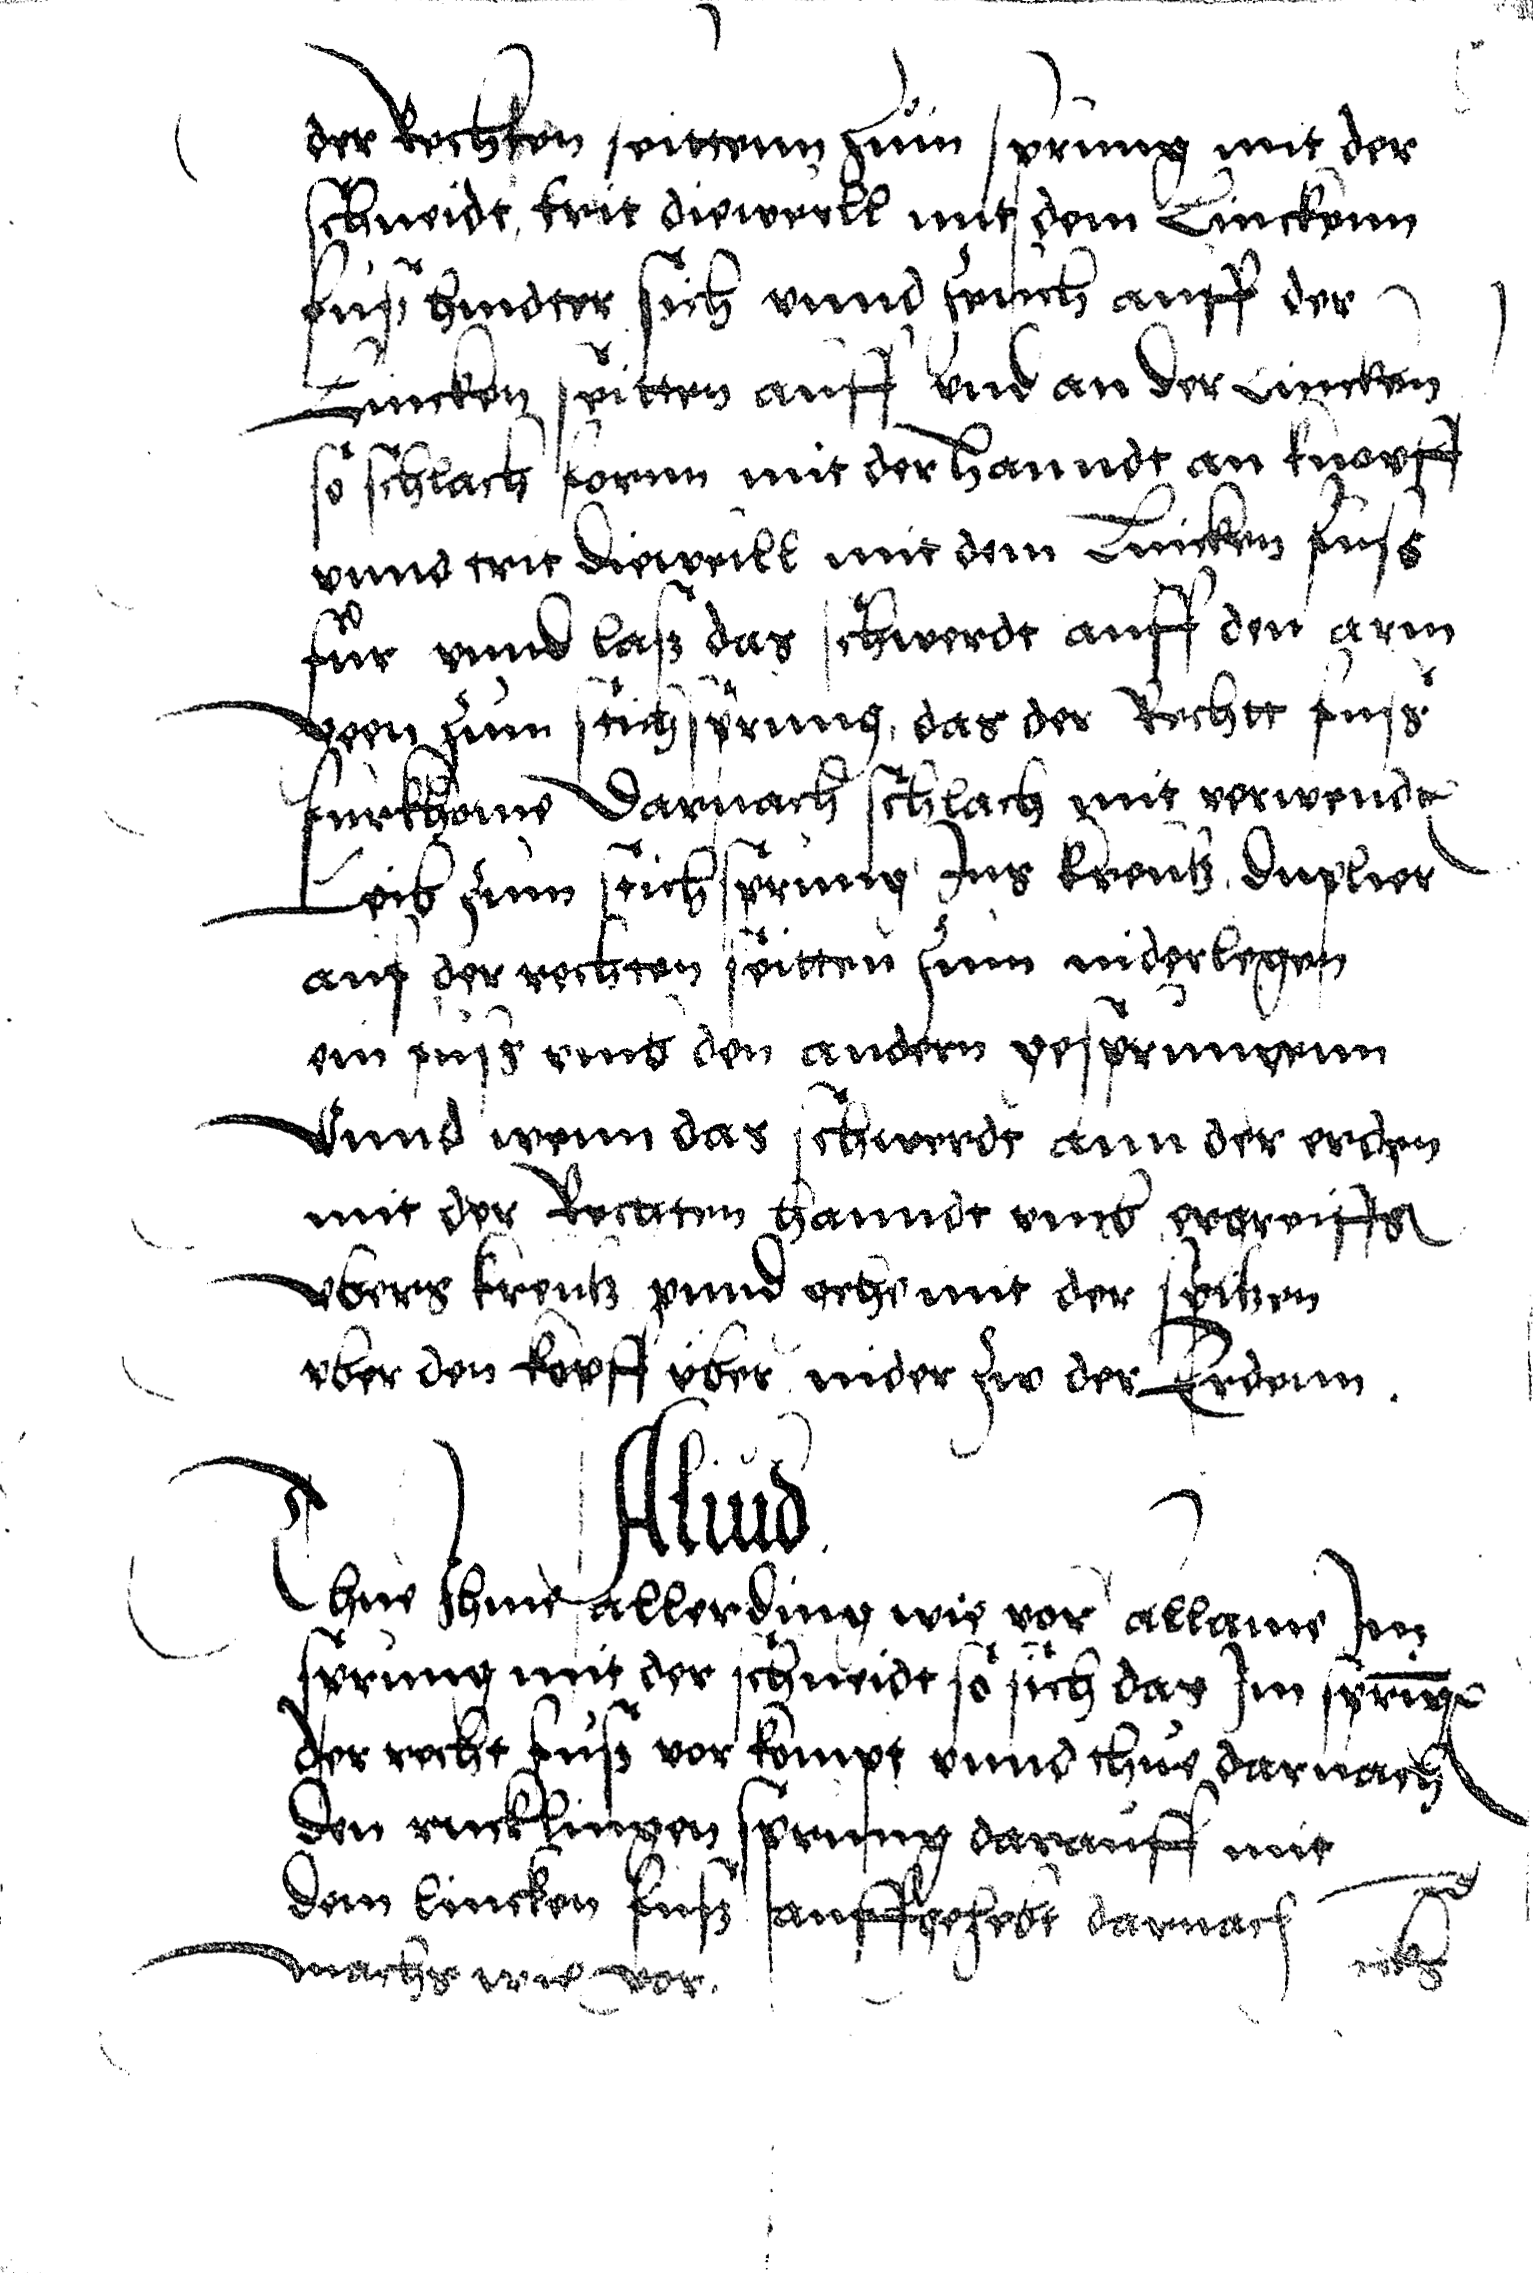 der Rechten seittenn zum sprung mit der
schneidt, trit dieweill mit dem Linckenn
fuß hindter sich vnnd zeuch auff der
Lincken seitten auff vnd an der Lincken
so schlach forrnn mit der hanndt an knopff
vnnd trit dieweill mit dem Lincken fuß
für vnnd laß das schwerdt auff den arm
geen zum stichsprung, das der Recht fuß
furkhome Darnach schlach mit verwendt
Leib zum stichsprung Ins kreutz, duplier
auf der rechten seitten zum niderlegen
ein fuß vmb den andern gesprungenn
Vnnd wenn das schwerdt ann der erden
mit der Rechten hanndt vmb ergreiffs
vbers kreutz vnnd gehe mit der spitzen
vber den kopff vber nider zw der Erdenn.
Aliud.
Thue Ihme allerding wie vor allaine Im
sprung mit der schneidt so sich das Im sprung
der recht fuß vor kompt vnnd thue darnach
den rucklingen sprung darauff mit
dem lincken fuß auffgehebt darnach
machs wie vor.